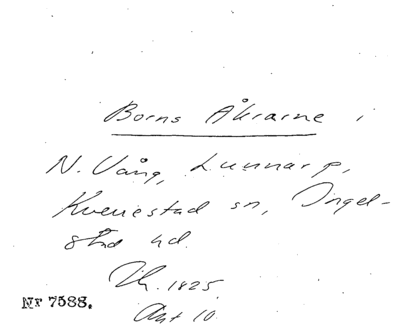 Borns Åkrarne i
N. Vång, Lunnarp,
Kverrestad sn, Ingel-
stad hd.
Nr 7588.
1825.
Akt 10.